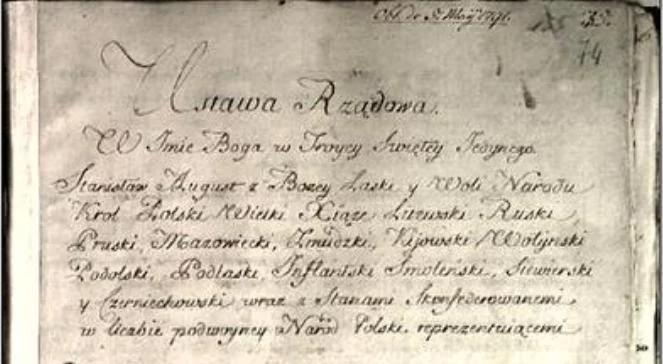 Obl. de 5. Maij 1791.
74
Ustawa Rządowa.
W Imie Boga w Troycy Swiętey Jedynego.
Stanisław August z Bozey Łaski y Woli Narodu
Krol Polski Wielki Xiąze Litewski Ruski,
Pruski, Mazowiecki, Zmudzki, Kijowski Wołyński
Podolski, Podlaski, Inflantski Smoleński, Siewierski
y Czerniechowski wraz z Stanami Skonfederowanemi,
w liczbie podwoyney Naród Polski reprezentuiącemi